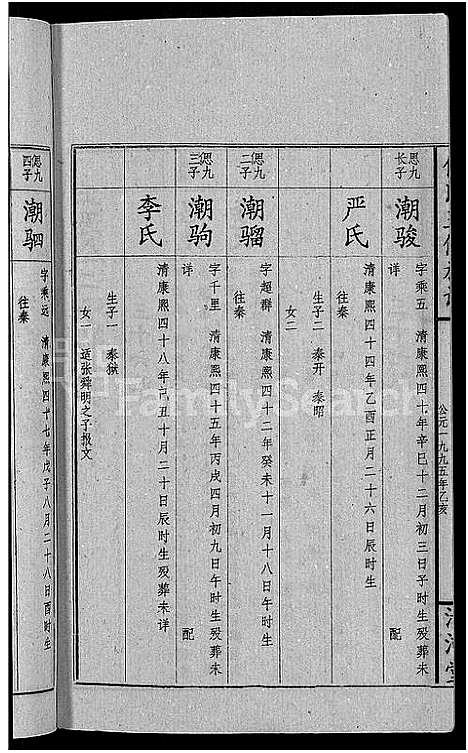 公元一九九五年乙亥
恩九
长子
潮骏
字乘五　清康熙四十年辛巳十二月初三日子时生殁葬未
详　配
严氏
清康熙四十四年乙酉正月二十六日辰时生
生子二　泰开　泰昭
女二
恩九
二子
潮骝
字超群　清康熙四十二年癸未十一月十八日午时生
往秦
恩九
三子
潮驹
字千里　清康熙四十五年丙戌四月初九日午时生殁葬未
详　配
李氏
清康熙四十八年己丑十月二十日辰时生殁葬未详
生子一　泰狱
女一　适张舜明之子报文
恩九
四子
潮驷
字乘远　清康熙四十七年戊子八月二十八日酉时生
往秦
FamilySearch